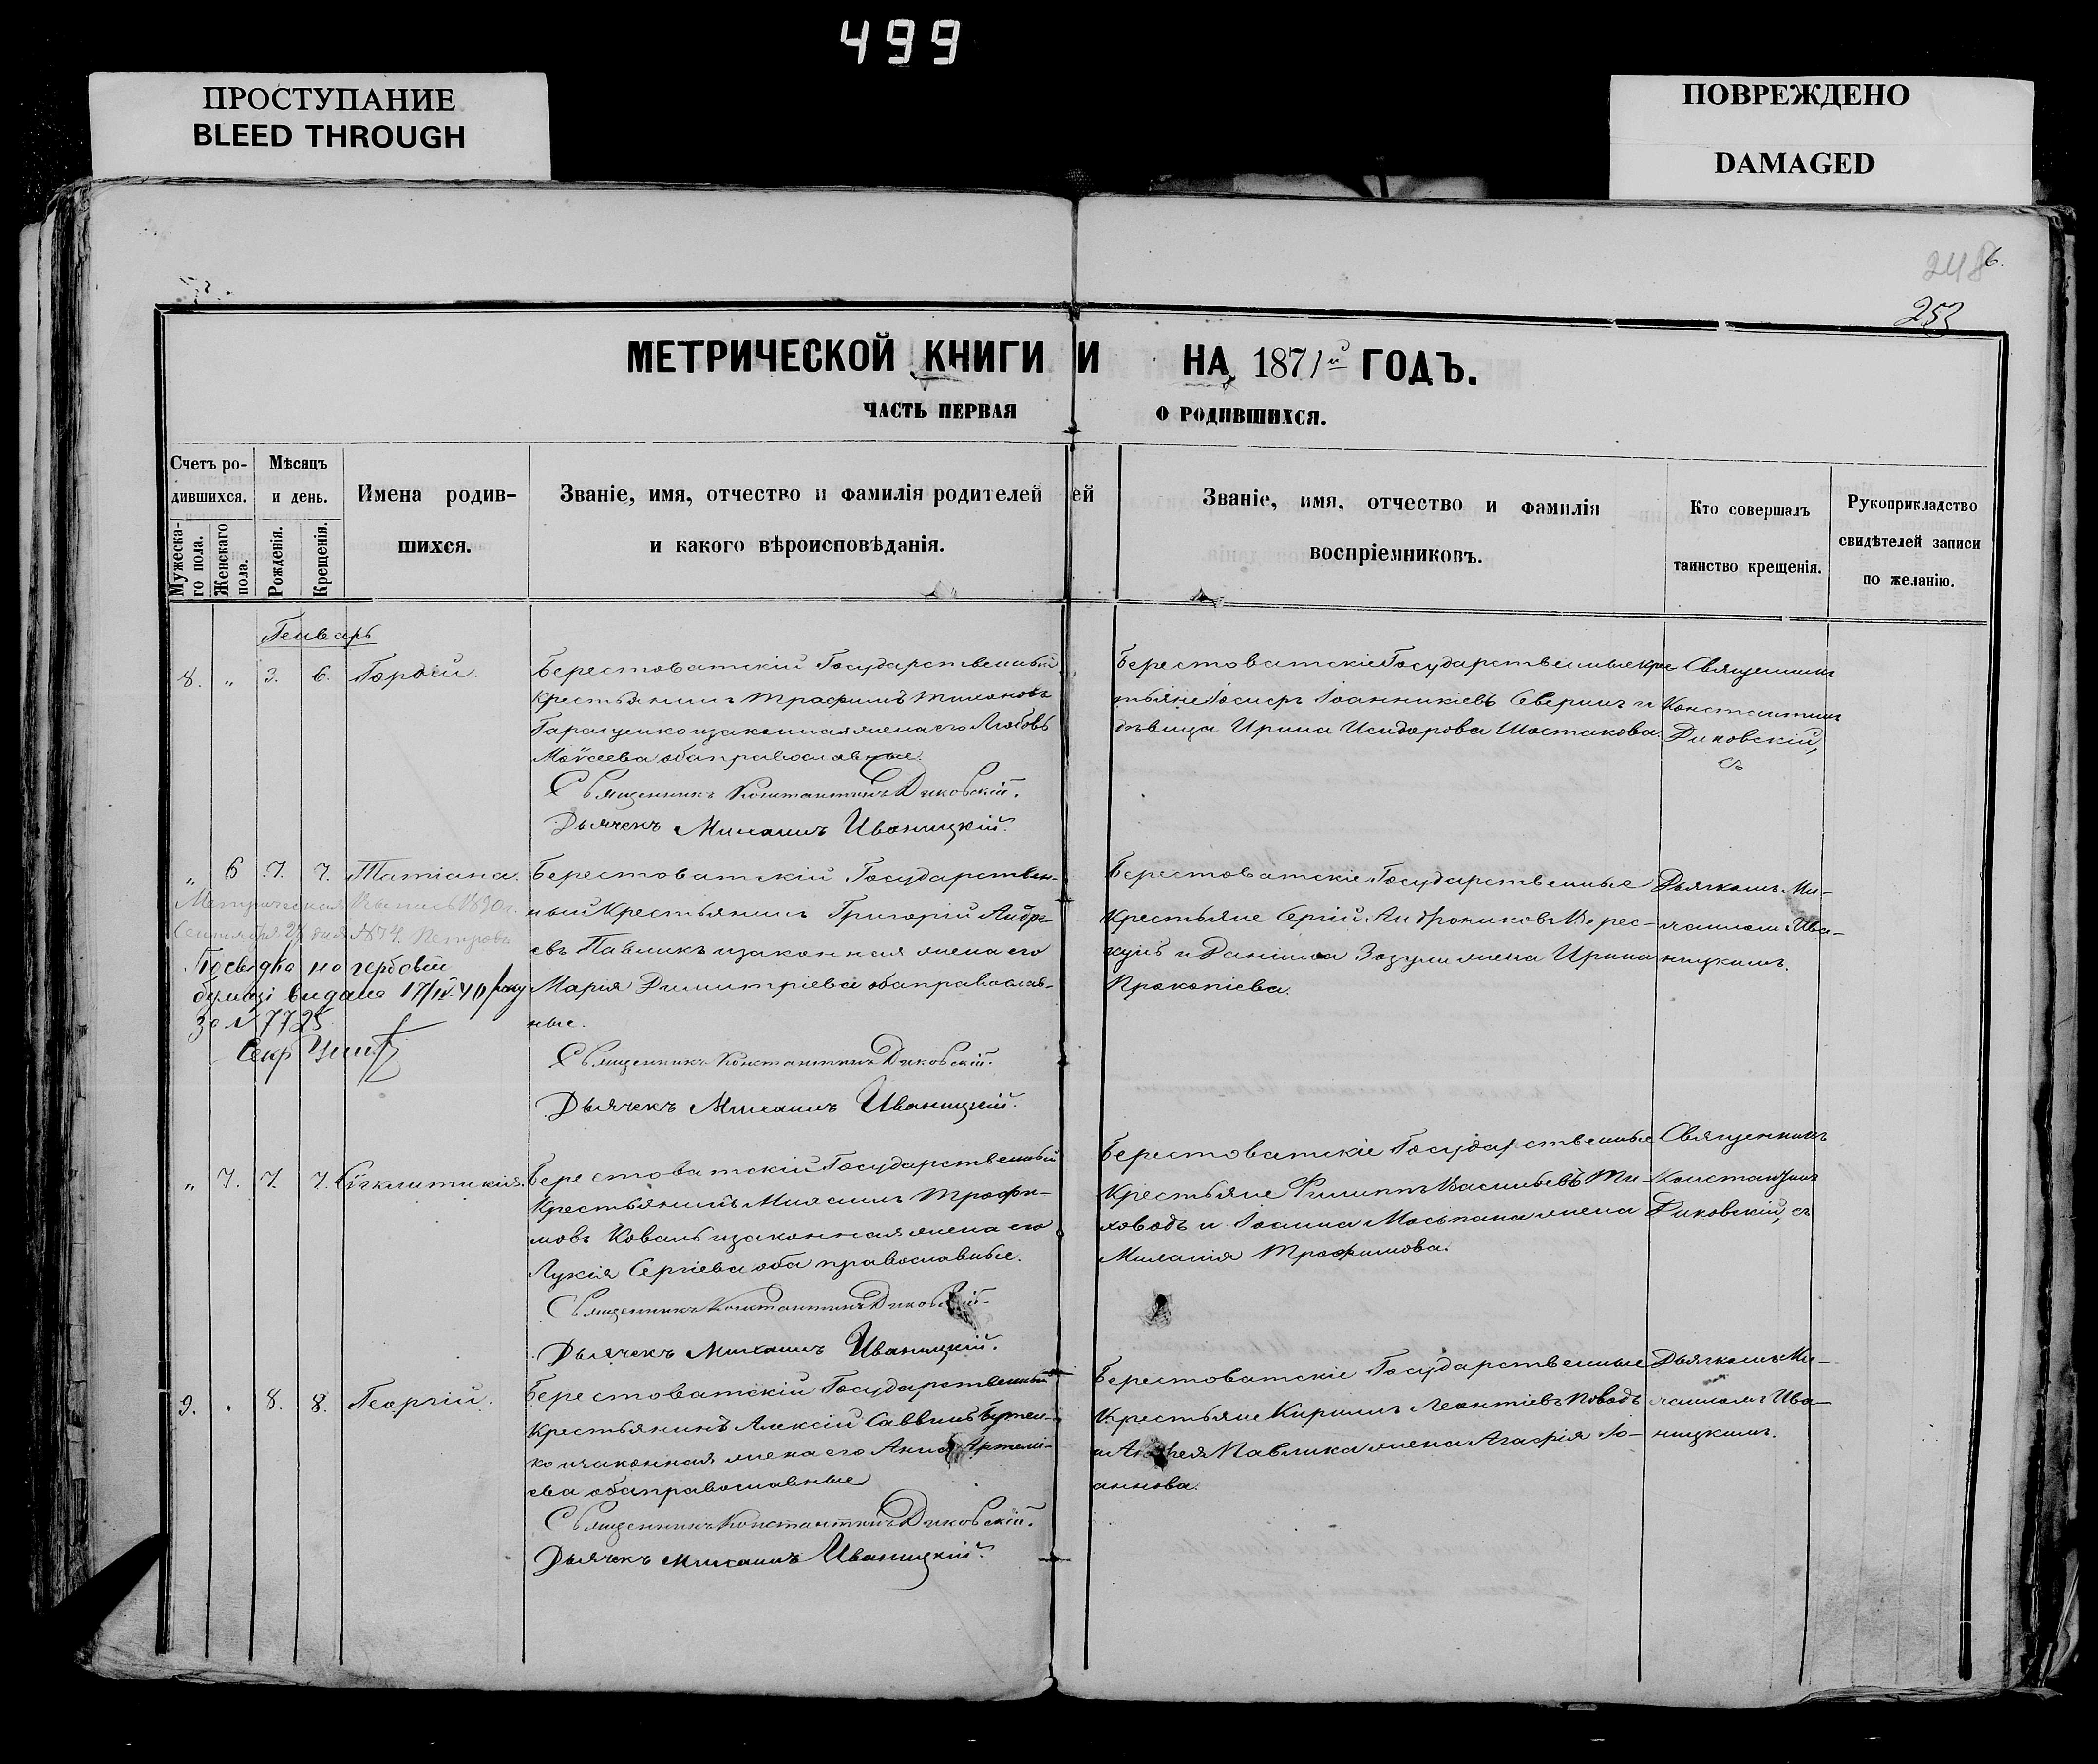 499
ПРОСТУПАНИЕ
BLEED THROUGH
ПОВРЕЖДЕНО
DAMAGED
248
6.
253
МЕТРИЧЕСКОЙ КНИГИ И НА 1871й ГОДЪ.
ЧАСТЬ ПЕРВАЯ О РОДИВШИХСЯ.
Счетъ ро-
дившихся.
Мужеска-
го пола.
Женскаго
пола.
Мѣсяцъ
и день.
Рожденія.
Крещенія.
Имена родив-
шихся.
Званіе, имя, отчество и фамилія родителей ей
и какого вѣроисповѣданія.
Званіе, имя, отчество и фамилія
воспріемниковъ.
Кто совершалъ
таинство крещенія.
Рукоприкладство
свидѣтелей записи
по желанію.
Генварь
8. „ 3. 6. Гордѣй.
Берестоватскій Государственный
Крестьянинъ Трофимъ
Гаращенко и законная жена его Любовь
Моѵсеева оба православные.
Священникъ Константинъ Диковскій.
Дьячекъ Михаилъ Иваницкій.
Берестоватскіе Государственные Крес
тьяне Іосифъ Іоанникіевъ Севринъ и
дѣвица Ирина Исидорова Шостакова.
Священникъ
Константинъ
Диковскій,
съ
„ 6 7. 7. Татіана.
Метрическая 1890 г.
Сентября 27 дня №74.
Посвідка на гербовій
бумазі видана 17/IV-40 року
за № 7725
Секр
Берестоватскій Государствен-
ный Крестьянинъ Григорій Андре
евъ Павликъ и законная жена его
Марія Димитріева оба православ-
ные.
Священникъ Константинъ Диковскій.
Дьячекъ Михаилъ Иваницкій.
Берестоватскіе Государственные
Крестьяне Сергій Андрониковъ Верес-
кунъ и Даніила Зозули жена Ирина
Прокопіева.
Дьячкомъ Ми-
хаиломъ Ива-
ницкимъ.
„ 7. 7. 7. Сѵгклитикія.
Берестоватскій Государственный
Крестьянинъ Михаилъ Трофи-
мовъ Коваль и законная жена его
Лукія Сергіева оба православные.
Священникъ Константинъ Диковскій.
Дьячекъ Михаилъ Иваницкій.
Берестоватскіе Государственные
Крестьяне Филиппъ Васильевъ Ти-
ховодъ и Іоанна Моспана жена
Миланія Трофимова.
Священникъ
Константинъ
Диковскій, съ
9. „ 8. 8. Георгій.
Берестоватскій Государственный
Крестьянинъ Алексій Саввинъ Бутен-
ко и законная жена его Анна Артемі-
ева оба православные
Священникъ Константинъ Диковскій.
Дьячекъ Михаилъ Иваницкій.
Берестоватскіе Государственные
Крестьяне Кирилъ Леонтіевъ Поводъ
и Андрея Павлика жена Агафія Іо-
аннова.
Дьячкомъ Ми-
хаиломъ Ива-
ницкимъ.